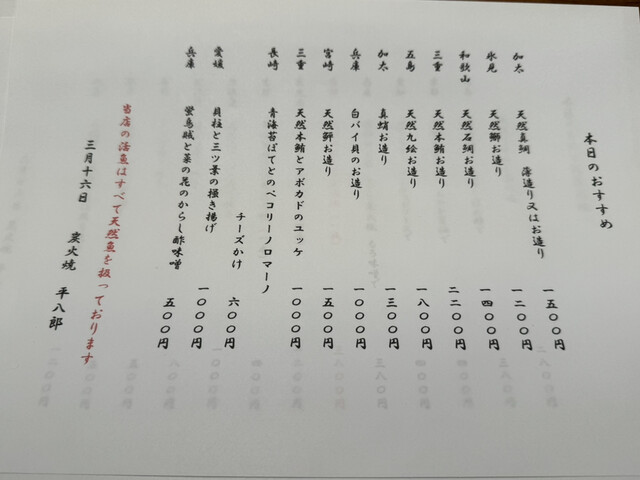 本日のおすすめ
加太 天然真鯛 薄造り又はお造り 一五〇〇円
氷見 天然鰤お造り 一二〇〇円
和歌山 天然石鯛お造り 一四〇〇円
三重 天然本鮪お造り 二二〇〇円
五島 天然九絵お造り 一八〇〇円
加太 真蛸お造り 一三〇〇円
兵庫 白バイ貝のお造り 一〇〇〇円
宮崎 天然鮃お造り 一五〇〇円
三重 天然本鮪とアボカドのユッケ 一〇〇〇円
長崎 青海苔ぽてとのペコリーノロマーノ
チーズかけ 六〇〇円
愛媛 貝柱と三ツ葉の掻き揚げ 一〇〇〇円
兵庫 螢烏賊と菜の花のからし酢味噌 五〇〇円
当店の活魚はすべて天然魚を扱っております
三月十六日 炭火焼 平八郎